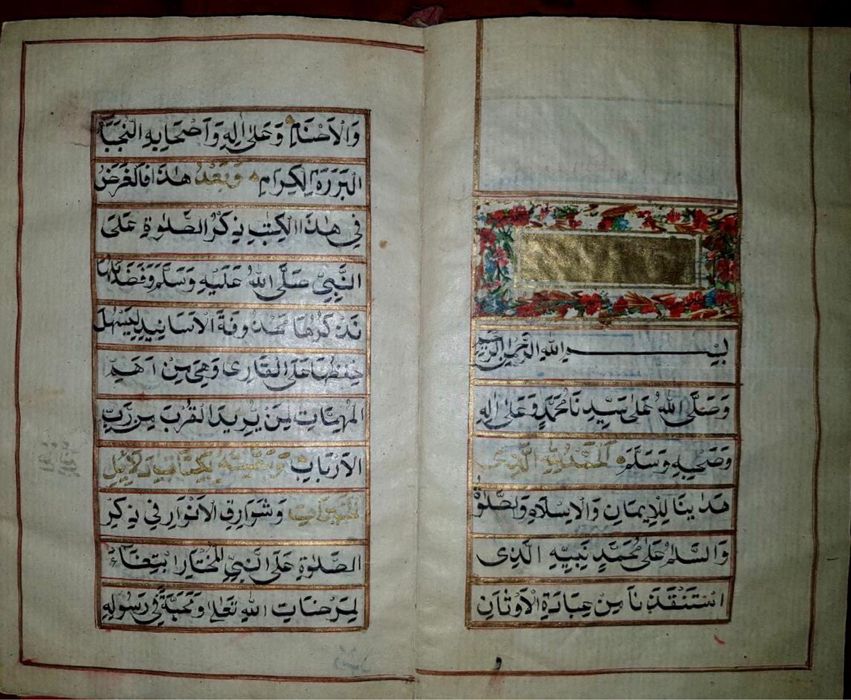 بِسْمِ اللهِ الرَّحْمٰنِ الرَّحِيمِ
وَصَلَّى اللهُ عَلٰى سَيِّدِنَا مُحَمَّدٍ وَعَلٰى اٰلِهِ
وَصَحْبِهِ وَسَلَّمَ اَلْحَمْدُ لِلّٰهِ الَّذِى
هَدٰينَا لِلْاِيمَانِ وَالْاِسْلَامِ وَالصَّلٰوةُ
وَالسَّلٰمُ عَلٰى مُحَمَّدٍ نَبِيِّهِ الَّذِى
اسْتَنْقَذَنَا مِنْ عِبَادَةِ الْاَوْثَانِ
وَالْاَصْنَامِ وَعَلٰى اٰلِهِ وَاَصْحَابِهِ النُّجَبَاءِ
الْبَرَرَةِ الْكِرَامِ وَبَعْدُ هٰذَا فَالْغَرَضُ
فِى هٰذَا الْكِتٰبِ ذِكْرُ الصَّلٰوةِ عَلَى
النَّبِيِّ صَلَّى اللهُ عَلَيْهِ وَسَلَّمَ وَفَضَائِلِهَا
نَذْكُرُهَا مَحْذُوفَةَ الْاَسَانِيدِ لِيَسْهُلَ
حِفْظُهَا عَلَى الْقَارِى وَهِيَ مِنْ اَهَمِّ
الْمُهِمَّاتِ لِمَنْ يُرِيدُ الْقُرْبَ مِنْ رَبِّ
الْاَرْبَابِ وَسَمَّيْتُهُ بِكِتَابِ دَلَائِلِ
الْخَيْرَاتِ وَشَوَارِقِ الْاَنْوَارِ فِى ذِكْرِ
الصَّلٰوةِ عَلَى النَّبِيِّ الْمُخْتَارِ ابْتِغَاءً
لِمَرْضَاتِ اللهِ تَعَالٰى وَمَحَبَّةً فِى رَسُولِهِ